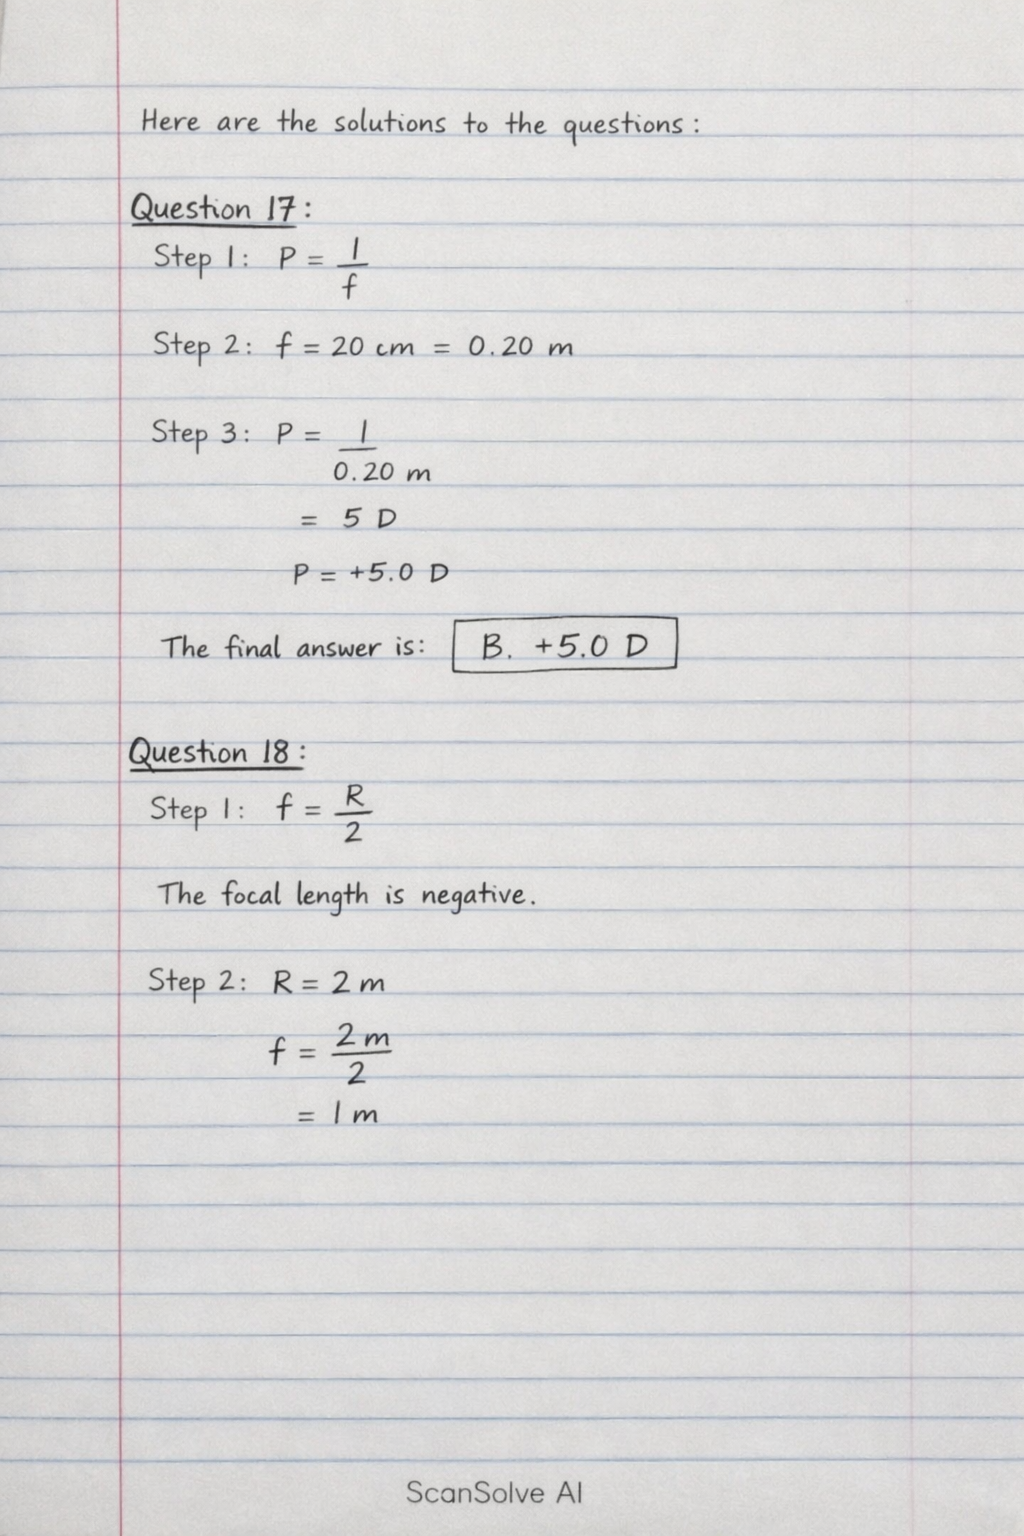 Here are the solutions to the questions:
Question 17:
Step 1: P = 1/f
Step 2: f = 20 cm = 0.20 m
Step 3: P = 1/0.20 m
= 5 D
P = +5.0 D
The final answer is: B. +5.0 D
Question 18:
Step 1: f = R/2
The focal length is negative.
Step 2: R = 2 m
f = 2 m/2
= 1 m
ScanSolve AI